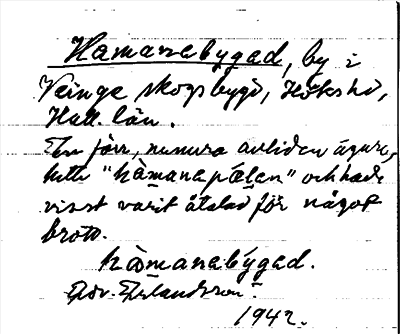 Hamanabygad, by i
Veinge skogsbygd, Höks hd,
Hall. län.
En förr, numera avliden ägare,
hette "hàmanapælan" och hade
visst varit åtalad för något
brott.
hàmanabýgad.
Erlandsson.
1942.